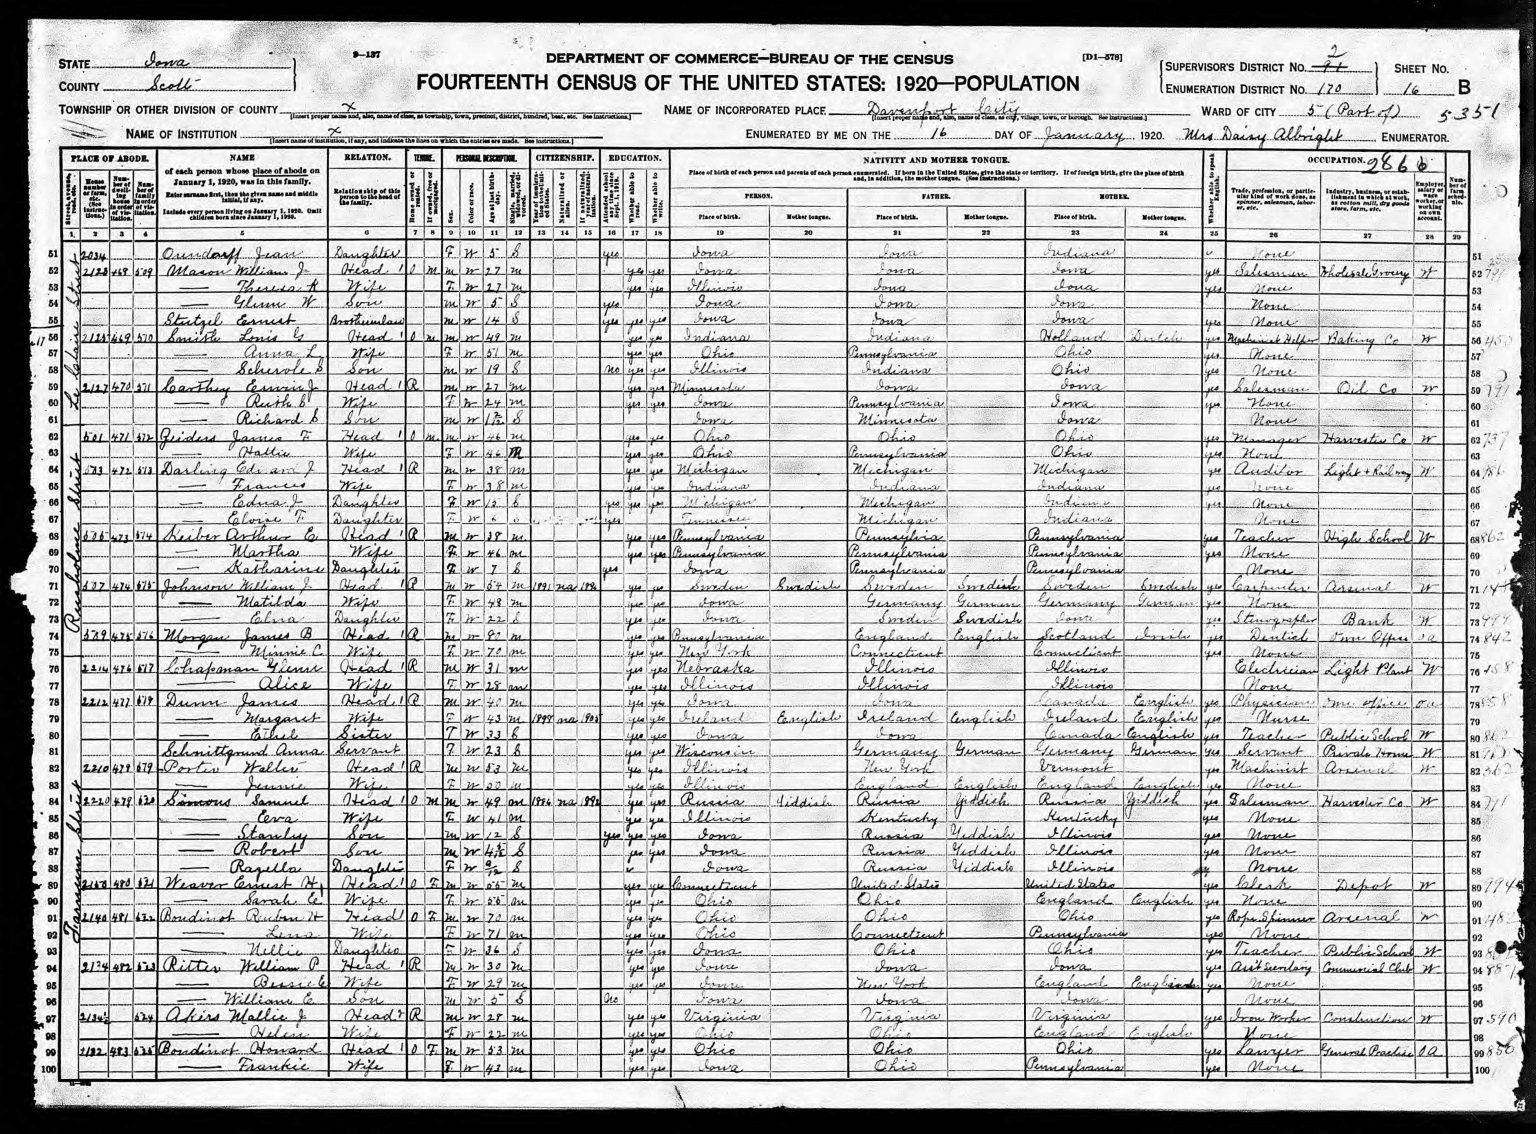 9-137 [D1-578]
DEPARTMENT OF COMMERCE—BUREAU OF THE CENSUS
FOURTEENTH CENSUS OF THE UNITED STATES: 1920—POPULATION
STATE Iowa
COUNTY Scott
SUPERVISOR'S DISTRICT No. 2
ENUMERATION DISTRICT No. 170
SHEET No. 16 B
TOWNSHIP OR OTHER DIVISION OF COUNTY x
NAME OF INCORPORATED PLACE Davenport City
WARD OF CITY 5 (Part of) 5351
NAME OF INSTITUTION x
ENUMERATED BY ME ON THE 16 DAY OF January, 1920. Mrs. Daisy Albright ENUMERATOR.
PLACE OF ABODE. NAME RELATION. TENURE. PERSONAL DESCRIPTION. CITIZENSHIP. EDUCATION. NATIVITY AND MOTHER TONGUE. OCCUPATION.
2866
of each person whose place of abode on January 1, 1920, was in this family.
Enter surname first, then the given name and middle initial, if any.
Include every person living on January 1, 1920. Omit children born since January 1, 1920.
Relationship of this person to the head of the family.
Place of birth of each person and parents of each person enumerated. If born in the United States, give the state or territory. If of foreign birth, give the place of birth and, in addition, the mother tongue. (See instructions.)
PERSON. FATHER. MOTHER.
Place of birth. Mother tongue. Place of birth. Mother tongue. Place of birth. Mother tongue.
1 2 3 4 5 6 7 8 9 10 11 12 13 14 15 16 17 18 19 20 21 22 23 24 25 26 27 28 29
Le Claire Street
Rusholme Street
Farnam Street
51 2034 Jean Daughter F W 5 S yes Iowa Iowa Indiana None 51
52 2123 468 509 Mason William J Head 1 O M M W 27 M yes yes Iowa Iowa Iowa yes Salesman Wholesale Grocery W 52
53 — Theresa K Wife F W 27 M yes yes Illinois Iowa Iowa yes None 53
54 — Glenn W Son M W 5 S yes Iowa Iowa Iowa None 54
55 Stutzel Ernest Brotherinlaw M W 14 S yes yes yes Iowa Iowa Iowa yes None 55
56 2125 469 570 Smith Louis G Head 1 O M M W 49 M yes yes Indiana Indiana Holland Dutch yes Machinist Helper Baking Co W 56
57 — Anna L Wife F W 51 M yes yes Ohio Pennsylvania Ohio yes None 57
58 — S Son M W 19 S no yes yes Illinois Indiana Ohio yes None 58
59 2127 470 571 Carthey Erwin J Head 1 R M W 27 M yes yes Minnesota Iowa Iowa yes Salesman Oil Co W 59
60 — Ruth C Wife F W 24 M yes yes Iowa Pennsylvania Iowa yes None 60
61 — Richard S Son M W S Iowa Minnesota Iowa None 61
62 501 471 572 Zeiders James F Head 1 O M M W 46 M yes yes Ohio Ohio Ohio yes Manager Harvester Co W 62 737
63 — Hallie Wife F W 46 M yes yes Ohio Pennsylvania Ohio yes None 63
64 503 472 573 Darling Edward J Head 1 R M W 38 M yes yes Michigan Michigan Michigan yes Auditor Light + Railway W 64
65 — Frances Wife F W 38 M yes yes Indiana Indiana Indiana yes None 65
66 — Edna J Daughter F W S yes yes yes Michigan Michigan Indiana yes None 66
67 — Eloise F Daughter F W 6 S yes Tennessee Michigan Indiana None 67
68 505 473 574 Keiber Arthur E Head 1 R M W 38 M yes yes Pennsylvania Pennsylvia Pennsylvania yes Teacher High School W 68 862
69 — Martha Wife F W 46 M yes yes Pennsylvania Pennsylvania Pennsylvania yes None 69
70 — Katharine Daughter F W 7 S yes Iowa Pennsylvania Pennsylvania None 70
71 507 474 575 Johnson William J Head 1 R M W 54 M 1891 na 1896 yes yes Sweden Swedish Sweden Swedish Sweden Swedish yes Carpenter Arsenal W 71
72 — Matilda Wife F W 48 M yes yes Iowa Germany German Germany German yes None 72
73 — Elna Daughter F W 22 S yes yes Iowa Sweden Swedish Iowa yes Stenographer Bank W 73
74 509 475 576 Morgan James B Head 1 R M W 80 M yes yes Pennsylvania England English Scotland Irish yes Dentist Own Office OA 74 842
75 — Minnie C Wife F W 70 M yes yes New York Connecticut Connecticut yes None 75
76 2214 476 517 Chapman Glenn Head 1 R M W 31 M yes yes Nebraska Illinois Illinois Electrician Light Plant W 76
77 — Alice Wife F W 28 M yes yes Illinois Illinois Illinois None 77
78 2212 477 578 Dunn James Head 1 R M W 40 M yes yes Iowa Iowa Canada English yes Physician Own office OA 78 858
79 — Margaret Wife F W 43 M 1898 na 1905 yes yes Ireland English Ireland English Ireland English yes Nurse 79
80 — Ethel Sister F W 33 S yes yes Iowa Iowa Canada English yes Teacher Public School W 80 862
81 Schnittgrund Anna Servant F W 23 S yes yes Wisconsin Germany German Germany German yes Servant Private Home W 81
82 2210 478 579 Porter Walter Head 1 R M W 53 M yes yes Illinois New York Vermont yes Machinist Arsenal W 82
83 — Jennie Wife F W 50 M yes yes Illinois England English England English yes None 83
84 2220 479 520 Simons Samuel Head 1 O M M W 49 M 1886 na 1892 yes yes Russia Yiddish Russia Yiddish Russia Yiddish yes Salesman Harvester Co W 84
85 — Eva Wife F W 41 M yes yes Illinois Kentucky Kentucky yes None 85
86 — Stanley Son M W 12 S yes yes yes Iowa Russia Yiddish Illinois yes None 86
87 — Robert Son M W S yes yes Iowa Russia Yiddish Illinois yes None 87
88 — Ragella Daughter F W S Iowa Russia Yiddish Illinois None 88
89 480 521 Weaver Ernest H Head 1 O F M W 55 M yes yes Connecticut United States United States yes Clerk Depot W 89 994
90 — Sarah E Wife F W 55 M yes yes Ohio Ohio England English yes None 90
91 2140 481 522 Boudinot Reuben H Head 1 O F M W 70 M yes yes Ohio Ohio Ohio yes Rope Spinner Arsenal W 91
92 — Lena Wife F W 71 M yes yes Ohio Connecticut Pennsylvania yes None 92
93 — Nellie Daughter F W 36 S yes yes Iowa Ohio Ohio yes Teacher Public School W 93
94 2134 482 523 Ritter William P Head 1 R M W 30 M yes yes Iowa Iowa Iowa yes Ass't Secretary Commercial Club W 94
95 — Bessie E Wife F W 29 M yes yes Iowa New York England English yes None 95
96 — William E Son M W 5 S no Iowa Iowa Iowa None 96
97 2134½ 524 Akers Mallie J Head 2 R M W 28 M yes yes Virginia Virginia Virginia yes Iron Worker Construction W 97 590
98 — Helen Wife F W 22 M yes yes Ohio Ohio England English yes None 98
99 2132 483 525 Boudinot Howard Head 1 O F M W 53 M yes yes Ohio Ohio Ohio yes Lawyer General Practice OA 99 856
100 — Frankie Wife F W 43 M yes yes Iowa Ohio Pennsylvania yes None 100